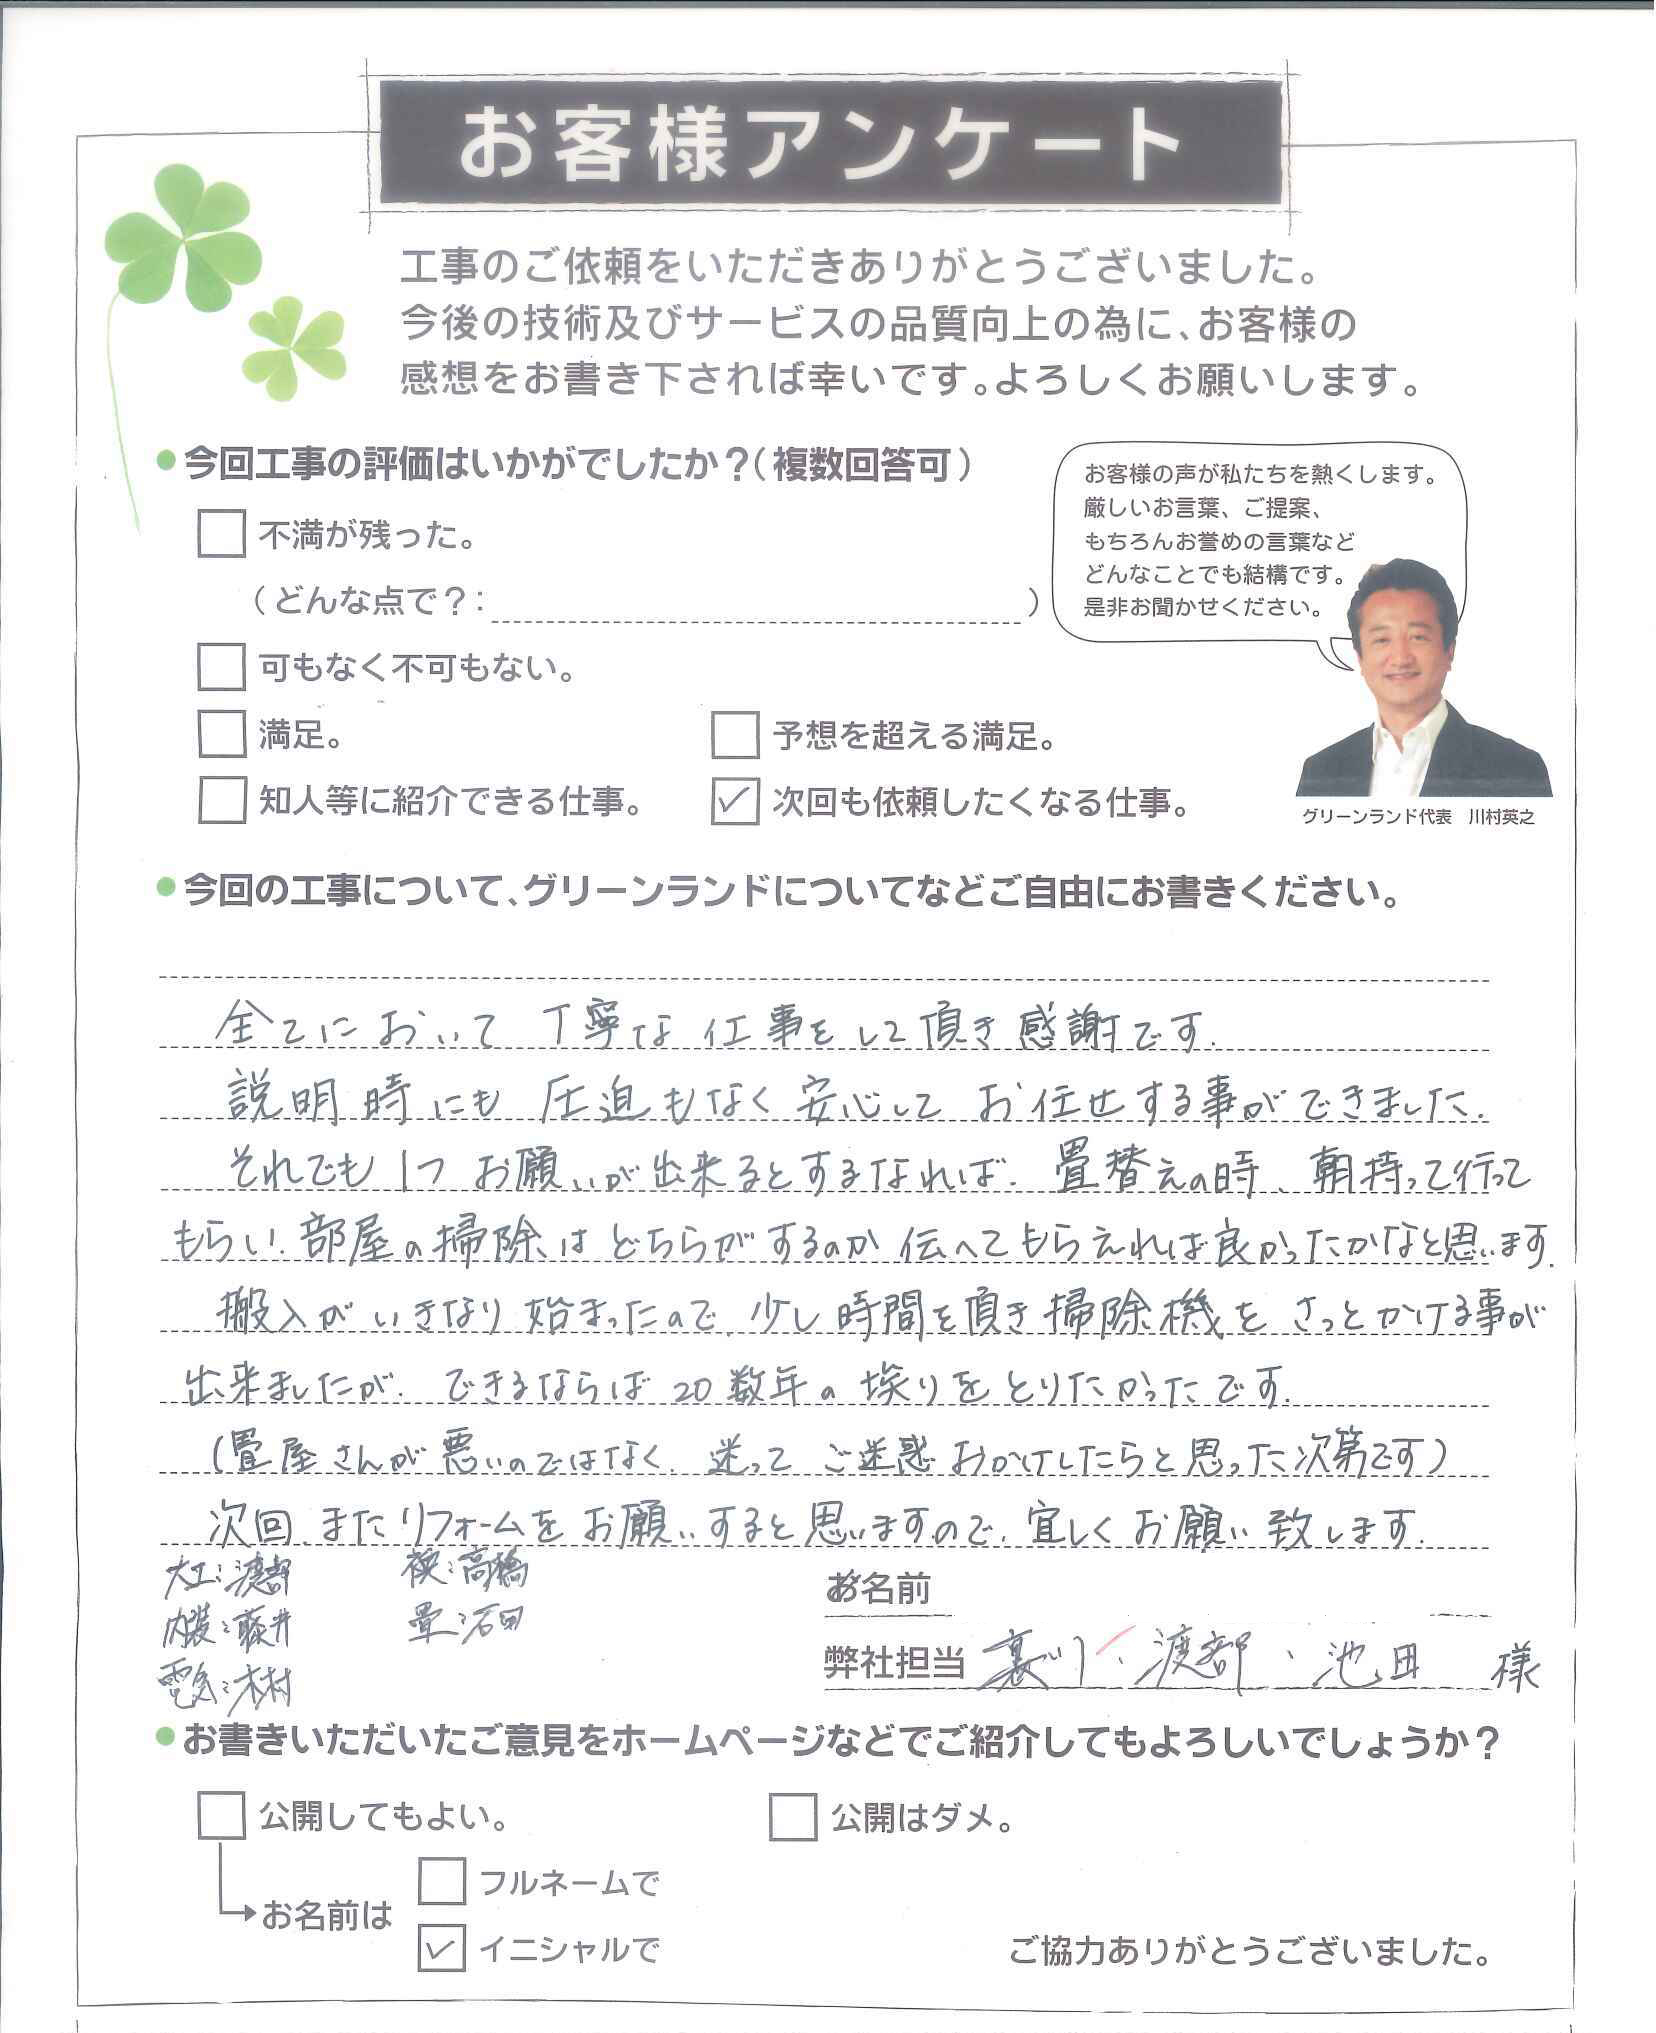 お客様アンケート
工事のご依頼をいただきありがとうございました。
今後の技術及びサービスの品質向上の為に、お客様の
感想をお書き下されば幸いです。よろしくお願いします。
今回工事の評価はいかがでしたか？（複数回答可）
不満が残った。
（どんな点で？： ）
可もなく不可もない。
満足。
予想を超える満足。
知人等に紹介できる仕事。
✓ 次回も依頼したくなる仕事。
お客様の声が私たちを熱くします。
厳しいお言葉、ご提案、
もちろんお誉めの言葉など
どんなことでも結構です。
是非お聞かせください。
グリーンランド代表 川村英之
今回の工事について、グリーンランドについてなどご自由にお書きください。
全てにおいて 丁寧な仕事をして頂き感謝です.
説明時にも 圧迫もなく安心して お任せする事ができました.
それでも1つ お願いが出来るとするなれば. 畳替えの時、朝持って行って
もらい. 部屋の掃除はどちらがするのか伝へてもらえれば良かったかなと思います.
搬入がいきなり始まったので. 少し時間を頂き掃除機を さっとかける事が
出来ましたが. できるならば20数年の埃りをとりたかったです.
(畳屋さんが悪いのではなく. 迷って ご迷惑おかけしたらと思った次第です)
次回. またリフォームをお願いすると思いますので. 宜しくお願い致します.
大工:渡部
襖:高橋
内装:藤井
畳:石田
電気:木村
お名前
弊社担当 裏川・渡部・池田 様
お書きいただいたご意見をホームページなどでご紹介してもよろしいでしょうか？
公開してもよい。
公開はダメ。
お名前は
フルネームで
✓ イニシャルで
ご協力ありがとうございました。